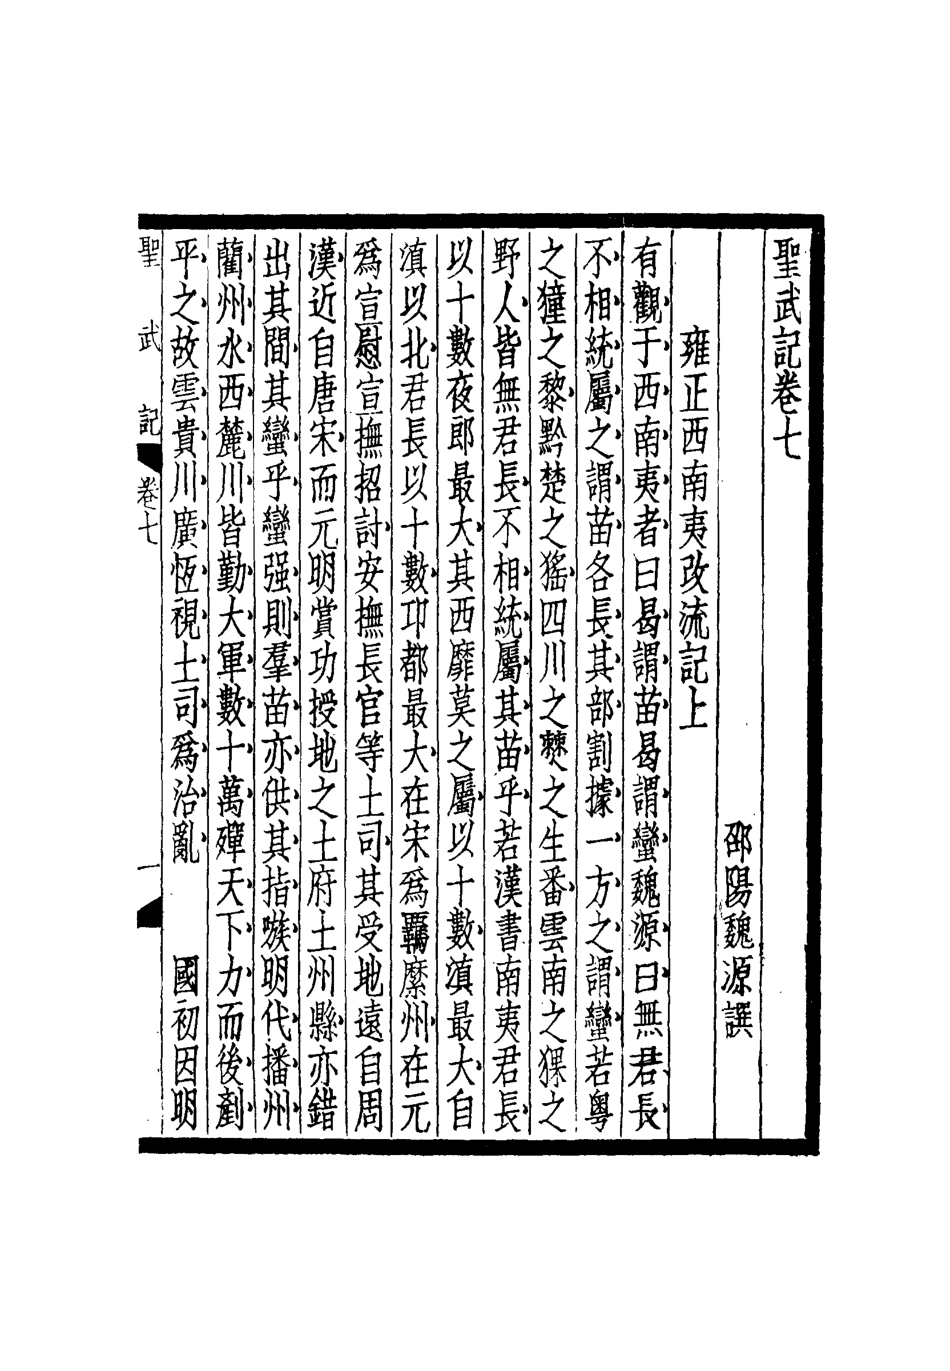 聖武記卷七
邵陽魏源譔
雍正西南夷改流記上
有觀于西南夷者曰曷謂苗曷謂蠻魏源曰無君長
不相統屬之謂苗各長其部割據一方之謂蠻若粵
之獞之黎黔楚之猺四川之僰之生番雲南之猓之
野人皆無君長不相統屬其苗乎若漢書南夷君長
以十數夜郎最大其西靡莫之屬以十數滇最大自
滇以北君長以十數邛都最大在宋爲羈縻州在元
爲宣慰宣撫招討安撫長官等土司其受地遠自周
漢近自唐宋而元明賞功授地之土府土州縣亦錯
出其間其蠻乎蠻强則羣苗亦供其指嗾明代播州
藺州水西麓川皆勤大軍數十萬殫天下力而後剷
平之故雲貴川廣恆視土司爲治亂　國初因明
聖武記
卷七
一